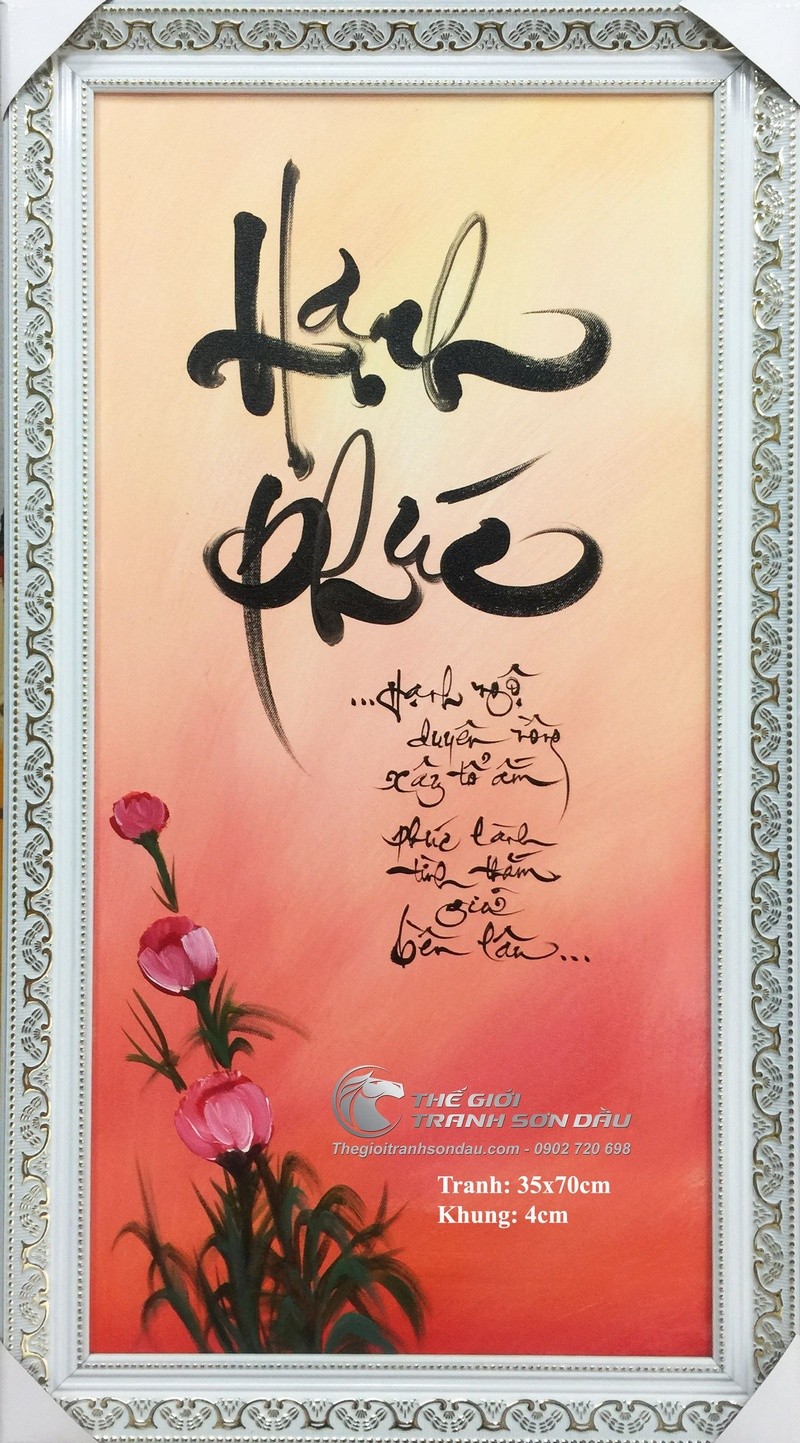 Hạnh
phúc
...Hạnh ngộ
duyên nồng
xây tổ ấm
phúc lành
tình thắm
giữ
bền lâu...
THẾ GIỚI
TRANH SƠN DẦU
Thegioitranhsondau.com - 0902 720 698
Tranh: 35x70cm
Khung: 4cm